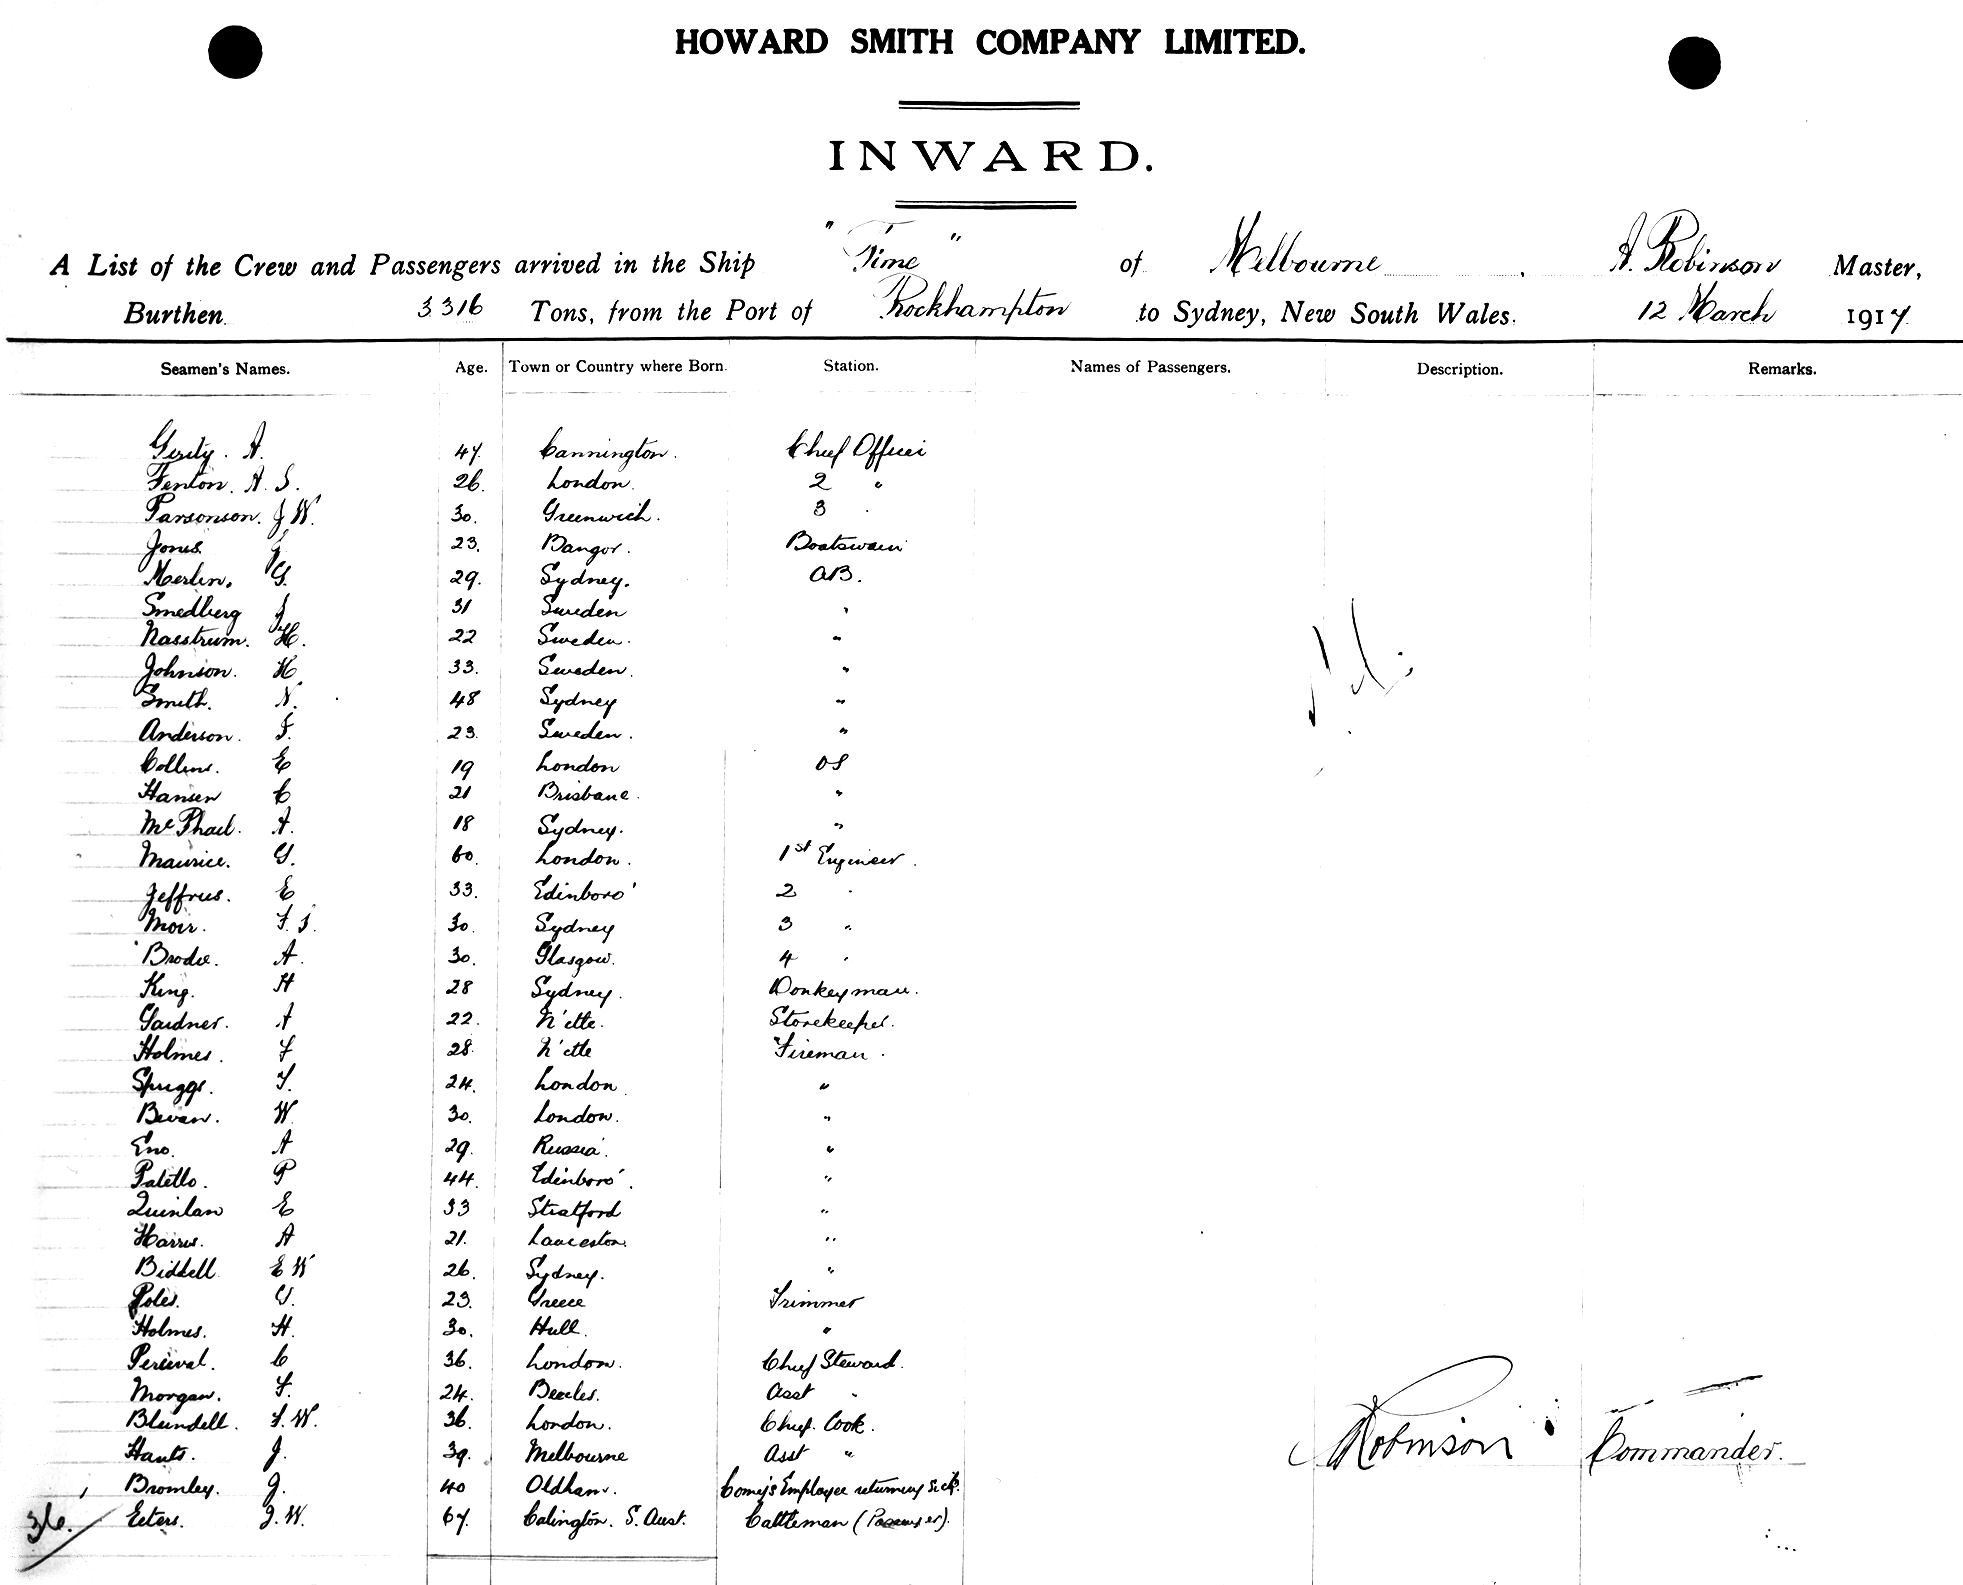 HOWARD SMITH COMPANY LIMITED.
INWARD.
A List of the Crew and Passengers arrived in the Ship "Time" of Melbourne, A. Robinson Master,
Burthen 3316 Tons, from the Port of Rockhampton to Sydney, New South Wales. 12 March 1917
Seamen's Names. Age. Town or Country where Born. Station. Names of Passengers. Description. Remarks.
Gerity. A. 47. Cannington. Chief Officer
Fenton. A. S. 26. London. 2 "
Parsonson. J W. 30. Greenwich. 3
Jones. 23. Bangor. Boatswain
Merlin. G. 29. Sydney. AB.
Smedberg J 31 Sweden "
Nasstrum. H. 22 Sweden. "
Johnson. H 33. Sweden. "
Smith. N. 48 Sydney "
Anderson. F. 23. Sweden. "
Collins. E 19 London OS
Hansen C 21 Brisbane. "
McPhail. A. 18 Sydney. "
Maurice. G. 60. London. 1st Engineer.
Jeffries. E 33. Edinboro' 2 "
Moir. F. S. 30. Sydney 3 "
Brodie. A. 30. Glasgow. 4 "
King. H 28 Sydney. Donkeyman.
Gardner. A 22. N'ctle. Storekeeper.
Holmes. F 28. N'ctle Fireman.
Spriggs. T. 24. London "
Bevan. W. 30. London. "
Eno. A 29. Russia. "
Patello. P 44. Edinboro'. "
Quinlan E 33 Stratford "
Harris. A 21. Launceston. "
Biddell E W 26. Sydney. "
Poles. G. 23. Greece Trimmer
Holmes. H. 30. Hull. "
Percival. C 36. London. Chief Steward.
Morgan. F. 24. Beccles. Asst "
Blundell. F. W. 36. London. Chief Cook.
Hants. J. 39. Melbourne Asst "
Robinson Commander.
Bromley. J. 40 Oldham. Comy's Employee returning sick.
36. Eeters. J. W. 67. Calington. S. Aust. Cattleman (Passenger).